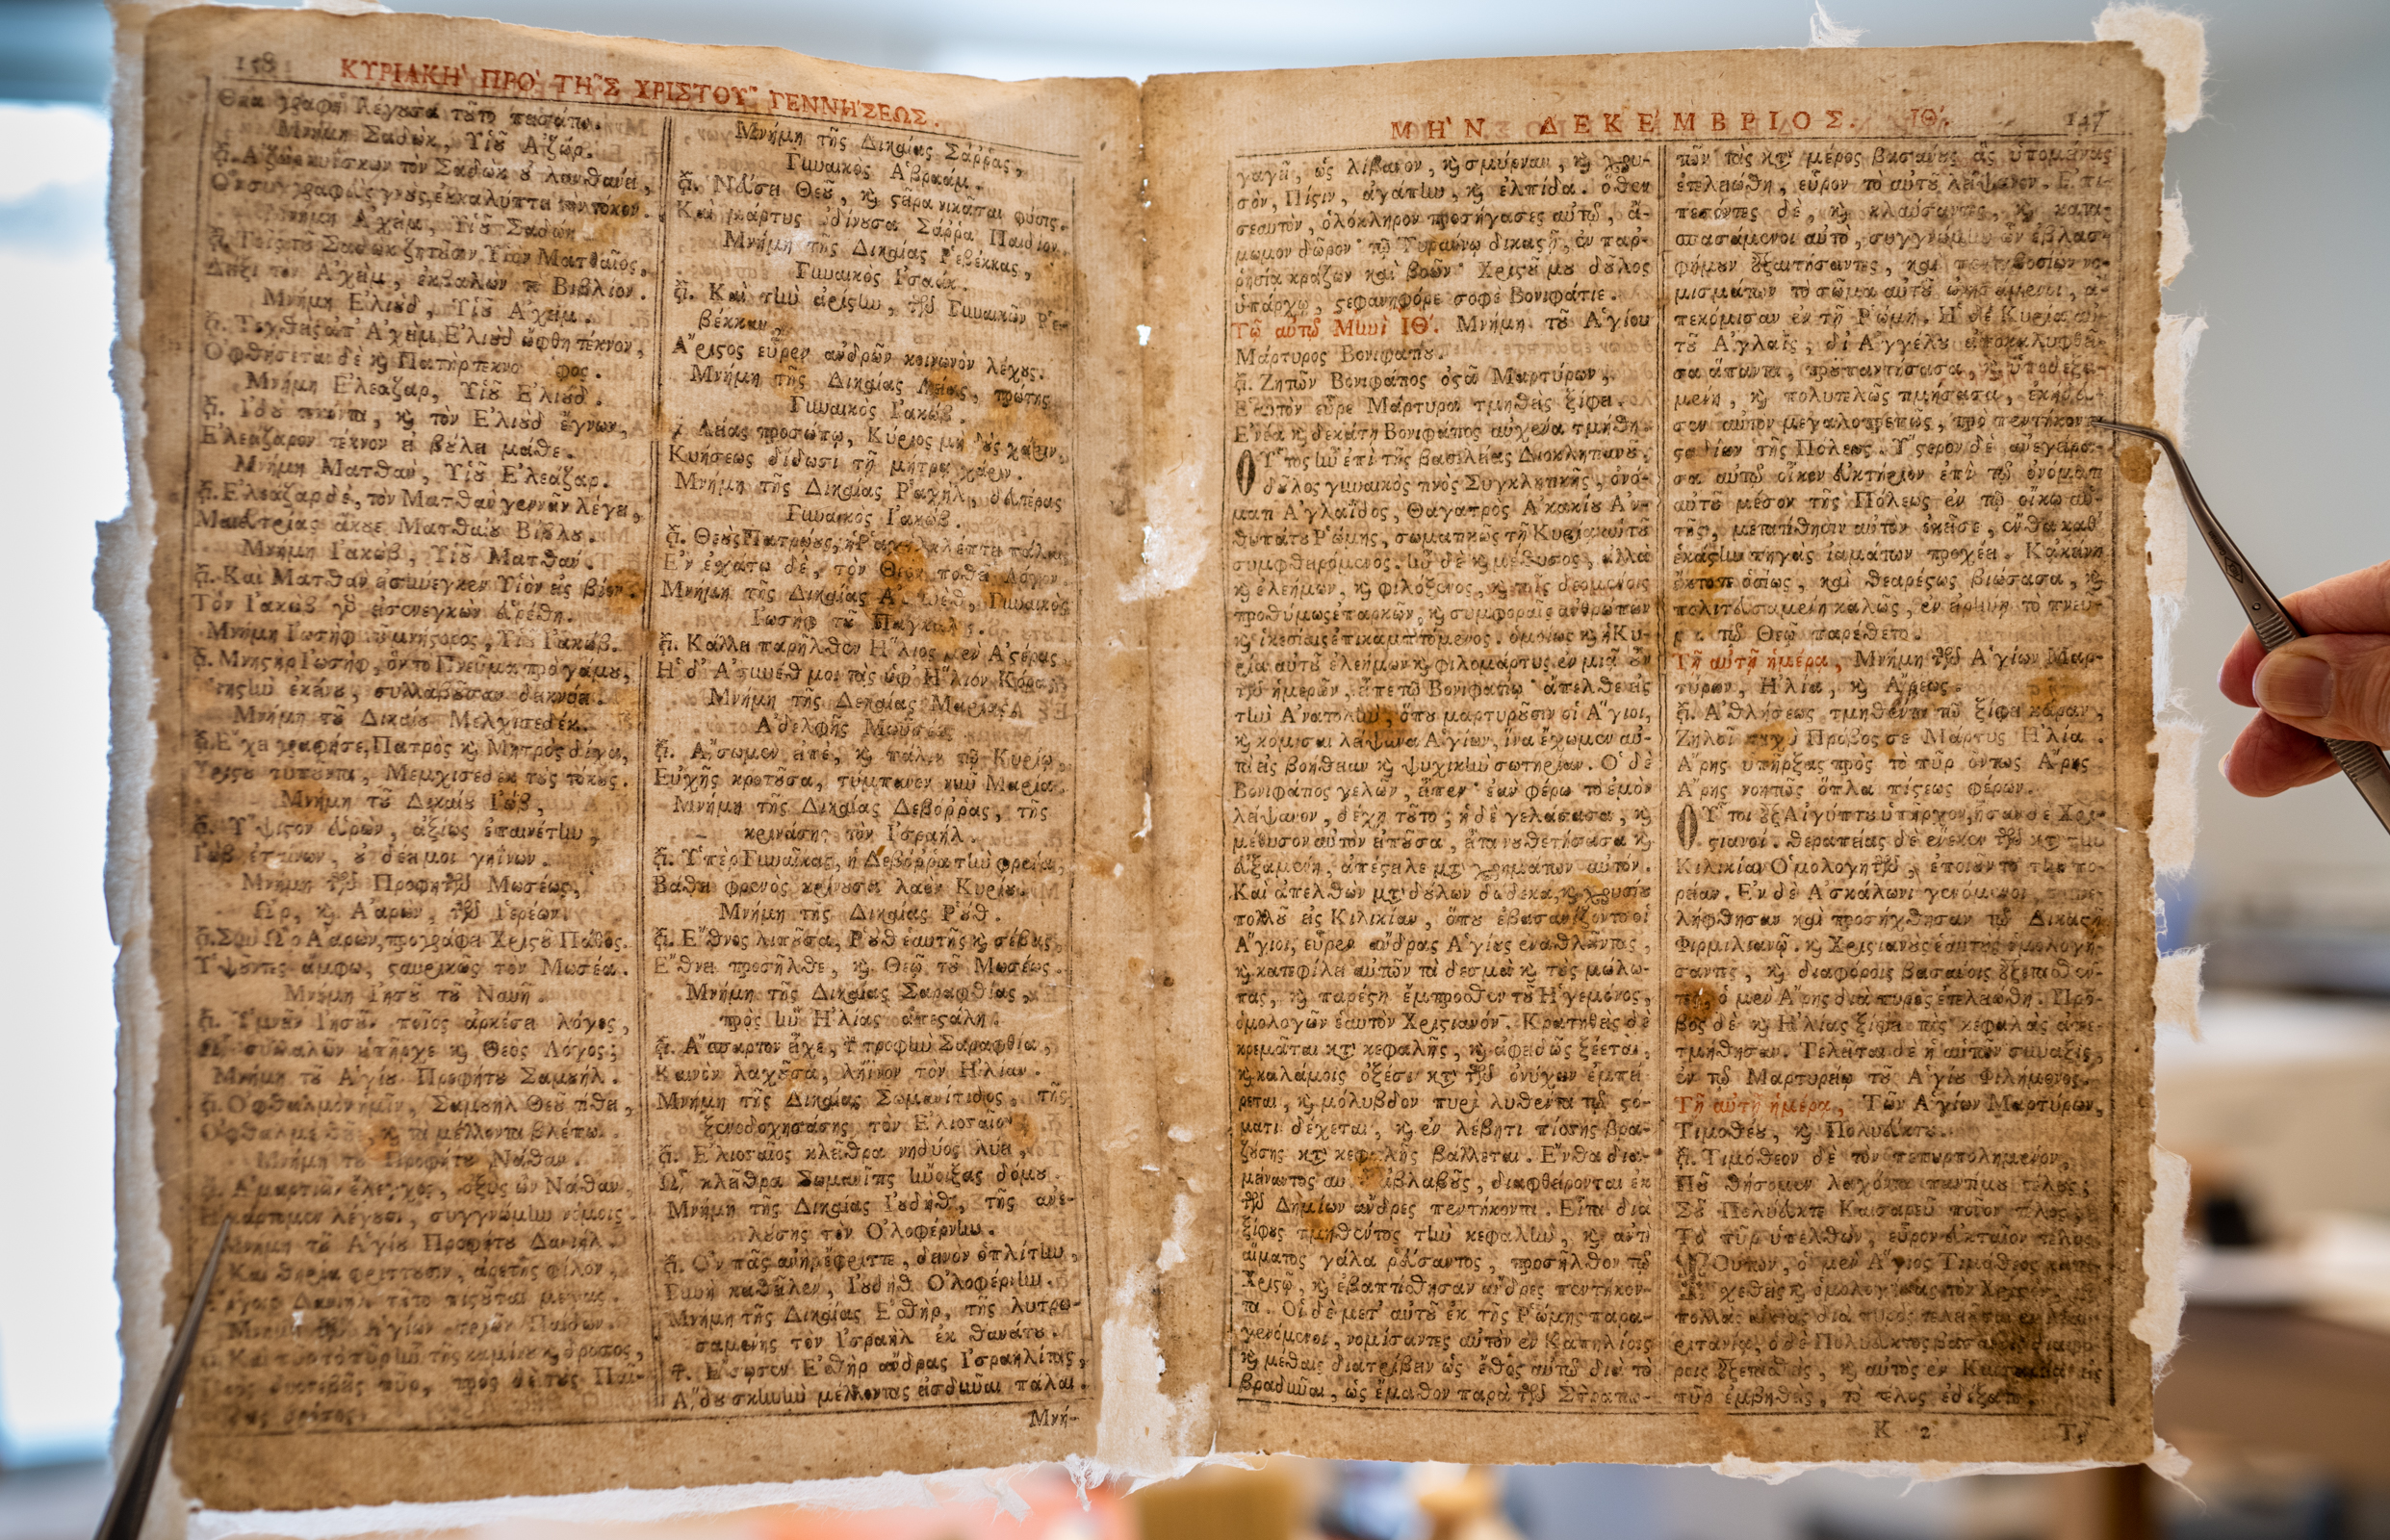 158 ΚΥΡΙΑΚΗ ΠΡΟ ΤΗΣ ΧΡΙΣΤΟΥ ΓΕΝΝΗΣΕΩΣ.
Θεία γραφὴ λέγουσα τοῦτο
Μνήμη Σαδὼκ, Υἱοῦ Ἀζώρ.
Ἀζὼρ κυΐσκων τὸν Σαδὼκ οὐ λανθάνει,
Μνήμη Ἀχεὶμ, Υἱοῦ Σαδώκ.
Τοῖς τοῦ Σαδὼκ ζητοῦσιν Υἱὸν Ματθαῖος,
Δείξει τὸν Ἀχεὶμ, ἐκβαλὼν τὸ Βιβλίον.
Μνήμη Ἐλιοὺδ, Υἱοῦ Ἀχείμ.
Τεχθεὶς ἀπ' Ἀχεὶμ Ἐλιοὺδ ὤφθη τέκνον,
Ὀφθήσεται δὲ καὶ Πατὴρ
Μνήμη Ἐλεάζαρ, Υἱοῦ Ἐλιούδ.
καὶ τὸν Ἐλιοὺδ ἔγνων,
Ἐλεάζαρον τέκνον εἰ βούλει μάθε.
Μνήμη Ματθὰν, Υἱοῦ Ἐλεάζαρ.
Ἐλεάζαρ δὲ, τὸν Ματθὰν γεννᾶν λέγει,
ἄκουε Ματθαίου Βίβλου.
Μνήμη Ἰακὼβ, Υἱοῦ Ματθάν.
Καὶ Ματθὰν εἰσήνεγκεν Υἱὸν εἰς βίον.
Τὸν Ἰακὼβ γὰρ εἰσενεγκὼν εὑρέθη.
Μνήμη Ἰωσὴφ τοῦ μνήστορος, Υἱοῦ Ἰακώβ.
Μνηστὴρ Ἰωσὴφ, ὃν τὸ Πνεῦμα πρὸ γάμου,
ἐκείνου, συλλαβοῦσαν δεικνύει.
Μνήμη τοῦ Δικαίου Μελχισεδέκ.
Πατρὸς καὶ Μητρὸς δίχα,
Χριστοῦ τυποῦντα, Μελχισεδὲκ τοὺς τόκους.
Μνήμη τοῦ Δικαίου Ἰώβ,
Ὕψιστον εὑρὼν, ἀξίως ἐπαινέτην,
Ἰὼβ ἐπαίνων, οὐ δέῃ μοι γηΐνων.
Μνήμη τῶν Προφητῶν Μωσέως,
Ὢρ, καὶ Ἀαρὼν, τῶν Ἱερέων.
Σὺν Ὢρ ὁ Ἀαρὼν, προγράφει Χριστοῦ Πάθος.
Ὑψοῦντες ἄμφω, σταυρικῶς τὸν Μωσέα.
Μνήμη Ἰησοῦ τοῦ Ναυῆ.
Ὑμνεῖν Ἰησοῦν ποῖος ἀρκέσει λόγος,
ᾯ συλλαλῶν ὑπῆρχε καὶ Θεὸς Λόγος;
Μνήμη τοῦ Ἁγίου Προφήτου Σαμουήλ.
Ὀφθαλμὸν ἡμῖν, Σαμουὴλ Θεοῦ τίθει,
καὶ τὰ μέλλοντα βλέπω.
Μνήμη τοῦ Προφήτου Νάθαν.
Ἁμαρτιῶν ἔλεγχος, ὀξὺς ὢν Νάθαν,
λέγουσι, συγγνώμην νέμοις.
Μνήμη τοῦ Ἁγίου Προφήτου Δανιήλ.
Καὶ θηρία φρίττουσιν, ἀρετῆς φίλον,
Μνήμη τῶν Ἁγίων τριῶν Παίδων.
Μνήμη τῆς Δικαίας Σάρρας,
Γυναικὸς Ἀβραάμ.
Νεύσει Θεοῦ, καὶ στεῖρα νικᾶται φύσις.
Καὶ μάρτυς ὠδίνουσα Σάρρα Παιδίον.
Μνήμη τῆς Δικαίας Ῥεβέκκας,
Γυναικὸς Ἰσαάκ.
Καὶ τὴν ἀρίστην, τῶν Γυναικῶν Ῥε-
βέκκαν,
Ἄριστος εὗρεν ἀνδρῶν κοινωνὸν λέχους.
Μνήμη τῆς Δικαίας Λείας, πρώτης
Γυναικὸς Ἰακώβ.
Λείας προσώπῳ, Κύριος μὴ δοὺς χάριν,
Κυήσεως δίδωσι τῇ μήτρᾳ χάριν.
Μνήμη τῆς Δικαίας Ῥαχὴλ, δευτέρας
Γυναικὸς Ἰακώβ.
Θεοὺς Πατρῴους, ἡ Ῥαχὴλ κλέπτει πάλαι,
Ἐν ἐσχάτῳ δὲ, τὸν Θεὸν ποθεῖ Λόγον.
Μνήμη τῆς Δικαίας Ἀσυνὲθ, Γυναικὸς
Ἰωσὴφ τοῦ Παγκάλου.
Κάλλει παρῆλθεν Ἥλιος μὲν Ἀστέρας
Ἡ δ' Ἀσυνὲθ μοι τὰς ὑφ' Ἥλιον Κόρας
Μνήμη τῆς Δικαίας Μαρίας
Ἀδελφῆς Μωϋσέως.
ᾌσωμεν εἰπὲ, καὶ πάλιν τῷ Κυρίῳ,
Εὐχῆς κροτοῦσα, τύμπανον νῦν Μαρία.
Μνήμη τῆς Δικαίας Δεβόρρας, τῆς
κρινάσης τὸν Ἰσραήλ.
Ὑπὲρ Γυναῖκας, ἡ Δεβόρρα τὴν φρένα,
Βάθει φρενὸς κρίνουσα λαὸν Κυρίου.
Μνήμη τῆς Δικαίας Ῥούθ.
Ἔθνος λιποῦσα, Ῥοὺθ ἑαυτῆς καὶ σέβας,
Ἔθνει προσῆλθε, καὶ Θεῷ τοῦ Μωσέως.
Μνήμη τῆς Δικαίας Σαραφθίας,
πρὸς ἣν Ἠλίας ἀπεστάλη.
Ἄσπαρτον εἶχε, τὴν τροφὴν Σαραφθία,
Καινὸν λαχοῦσα, λήϊνον τὸν Ἠλίαν.
Μνήμη τῆς Δικαίας Σωμανίτιδος, τῆς
ξενοδοχησάσης τὸν Ἐλισσαῖον.
Ἐλισσαῖος κλεῖθρα νηδύος λύει,
ᾯ κλεῖθρα Σωμανῖτις ἤνοιξας δόμου.
Μνήμη τῆς Δικαίας Ἰουδὴθ, τῆς ἀνε-
λούσης τὸν Ὀλοφέρνην.
Ὃν πᾶς ἀνὴρ ἔφριττε, δεινὸν ὁπλίτην,
Γυνὴ καθεῖλεν, Ἰουδὴθ Ὀλοφέρνην.
Μνήμη τῆς Δικαίας Ἐσθὴρ, τῆς λυτρω-
σαμένης τὸν Ἰσραὴλ ἐκ θανάτου.
Ἔσωσεν Ἐσθὴρ ἄνδρας Ἰσραηλίτας,
Ἅδου σκηνὴν μέλλοντας εἰσδῦναι πάλαι.
Μνή-
ΜΗΝ ΔΕΚΕΜΒΡΙΟΣ. ΙΘ'. 147
γαγεῖ, ὡς λίβανον, καὶ σμύρναν, καὶ χρυ-
σὸν, Πίστιν, ἀγάπην, καὶ ἐλπίδα. ὅθεν
σεαυτὸν, ὁλόκληρον προσήγασες αὐτῷ, ἄ-
μωμον δῶρον τῷ Τυράννῳ δικαστῇ, ἐν παρ-
ρησίᾳ κράζων καὶ βοῶν· Χριστοῦ μου δοῦλος
ὑπάρχω, στεφανηφόρε σοφὲ Βονιφάτιε.
Τῷ αὐτῷ Μηνὶ ΙΘ'. Μνήμη τοῦ Ἁγίου
Μάρτυρος Βονιφατίου.
Ζητῶν Βονιφάτιος ὀστᾶ Μαρτύρων,
Ἑαυτὸν εὗρε Μάρτυρα τμηθεὶς ξίφει.
Ἐνέα καὶ δεκάτῃ Βονιφάτιος αὐχένα τμήθη.
ΟΥτος ἦν ἐπὶ τῆς βασιλείας Διοκλητιανοῦ,
δοῦλος γυναικὸς τινὸς Συγκλητικῆς, ὀνό-
ματι Ἀγλαΐδος, Θυγατρὸς Ἀκακίου Ἀν-
θυπάτου Ῥώμης, σωματικῶς τῇ Κυρίᾳ αὐτοῦ
συμφθειρόμενος. ἦν δὲ καὶ μέθυσος, ἀλλὰ
καὶ ἐλεήμων, καὶ φιλόξενος, καὶ τοῖς δεομένοις
προθύμως ἐπαρκῶν, καὶ συμφοραῖς ἀνθρώπων
καὶ ἱκεσίαις ἐπικαμπτόμενος. ὁμοίως καὶ ἡ Κυ-
ρία αὐτοῦ ἐλεήμων καὶ φιλομάρτυς. ἐν μιᾷ οὖν
τῶν ἡμερῶν, εἶπε τῷ Βονιφατίῳ· ἄπελθε εἰς
τὴν Ἀνατολὴν, ὅπου μαρτυροῦσιν οἱ Ἅγιοι,
καὶ κόμισαι λείψανα Ἁγίων, ἵνα ἔχωμεν αὐ-
τὰ εἰς βοήθειαν καὶ ψυχικὴν σωτηρίαν. Ὁ δὲ
Βονιφάτιος γελῶν, εἶπεν· ἐὰν φέρω τὸ ἐμὸν
λείψανον, δέχῃ τοῦτο; ἡ δὲ γελάσασα, καὶ
μέθυσον αὐτὸν εἰποῦσα, εἶτα νουθετήσασα καὶ
εὐξαμένη, ἀπέστειλε μετὰ χρημάτων αὐτόν.
Καὶ ἀπελθὼν μετὰ δούλων δώδεκα, καὶ χρυσίου
πολλοῦ εἰς Κιλικίαν, ὅπου ἐβασανίζοντο οἱ
Ἅγιοι, εὗρεν ἄνδρας Ἁγίους ἐναθλοῦντας,
καὶ κατεφίλει αὐτῶν τὰ δεσμὰ καὶ τοὺς μώλω-
πας, καὶ παρέστη ἔμπροσθεν τοῦ Ἡγεμόνος,
ὁμολογῶν ἑαυτὸν Χριστιανόν. Κρατηθεὶς δὲ
κρεμᾶται κατὰ κεφαλῆς, καὶ ἀφειδῶς ξέεται,
καὶ καλάμοις ὀξέσι κατὰ τῶν ὀνύχων ἐμπεί-
ρεται, καὶ μόλυβδον πυρὶ λυθέντα τῷ στό-
ματι δέχεται, καὶ ἐν λέβητι πίσσης βρα-
ζούσης κατὰ κεφαλῆς βάλλεται. Ἔνθα δια-
μείναντος αὐτοῦ ἀβλαβοῦς, διαφθείρονται ἐκ
τῶν Δημίων ἄνδρες πεντήκοντα. Εἶτα διὰ
ξίφους τμηθέντος τὴν κεφαλὴν, καὶ ἀντὶ
αἵματος γάλα ῥεύσαντος, προσῆλθον τῷ
Χριστῷ, καὶ ἐβαπτίσθησαν ἄνδρες πεντήκον-
τα. Οἱ δὲ μετ' αὐτοῦ ἐκ τῆς Ῥώμης παρα-
γενόμενοι, νομίσαντες αὐτὸν ἐν Καπηλείοις
καὶ μέθαις διατρίβειν ὡς ἔθος αὐτῷ διὰ τὸ
βραδῦναι, ὡς ἔμαθον παρὰ τῶν Στρατιω-
τῶν τὰς κατὰ μέρος βασάνους ἃς ὑπομείνας
ἐτελειώθη, εὗρον τὸ αὐτοῦ λείψανον. Ἐπι-
πεσόντες δὲ, καὶ κλαύσαντες, καὶ κατα-
σπασάμενοι αὐτὸ, συγγνώμην ὧν ἐβλασ-
φήμουν ἐξαιτήσαντες, καὶ πεντακοσίων νο-
μισμάτων τὸ σῶμα αὐτοῦ ὠνησάμενοι, ἀ-
πεκόμισαν ἐν τῇ Ῥώμῃ. Ἡ δὲ Κυρία αὐ-
τοῦ Ἀγλαΐς, δι' Ἀγγέλου ἀποκαλυφθεῖ-
σα ἅπαντα, προϋπαντήσασα, καὶ ὑποδεξα-
μένη, καὶ πολυτελῶς τιμήσασα, ἐκήδευ-
σεν αὐτὸν μεγαλοπρεπῶς, πρὸ πεντήκοντα
σταδίων τῆς Πόλεως. Ὕστερον δὲ ἀνεγείρα-
σα αὐτῷ οἶκον εὐκτήριον ἐπὶ τῷ ὀνόματι
αὐτοῦ μέσον τῆς Πόλεως ἐν τῷ οἴκῳ αὐ-
τῆς, μετατίθησιν αὐτὸν ἐκεῖσε, ἔνθα καθ'
ἑκάστην πηγὰς ἰαμάτων προχέει. Κἀκείνη
ἔκτοτε ὁσίως, καὶ θεαρέστως βιώσασα, καὶ
πολιτευσαμένη καλῶς, ἐν εἰρήνῃ τὸ πνεῦ-
μα τῷ Θεῷ παρέθετο.
Τῇ αὐτῇ ἡμέρᾳ, Μνήμη τῶν Ἁγίων Μαρ-
τύρων, Ἠλία, καὶ Ἄρεως.
Ἀθλήσεως τμηθέντα τῷ ξίφει κάραν,
Ζηλοῖ Πρόβος σε Μάρτυς Ἠλία.
Ἄρης ὑπῆρξας πρὸς τὸ πῦρ ὄντως Ἄρης
Ἄρης νοητῶς ὅπλα πίστεως φέρων.
ΟΥτοι ἐξ Αἰγύπτου ὑπῆρχον, ἦσαν δὲ Χρι-
στιανοί. θεραπείας δὲ ἕνεκεν τῶν κατὰ τὴν
Κιλικίαν Ὁμολογητῶν, ἐποιοῦντο τὴν πο-
ρείαν. Ἐν δὲ Ἀσκάλωνι γενόμενοι,
λήφθησαν καὶ προσήχθησαν τῷ Δικαστῇ
Φιρμιλιανῷ. καὶ Χριστιανοὺς ἑαυτοὺς ὁμολογή-
σαντες, καὶ διαφόροις βασάνοις ἐξετασθέν-
τες, ὁ μὲν Ἄρης διὰ πυρὸς ἐτελειώθη. Πρό-
βος δὲ καὶ Ἠλίας ξίφει τὰς κεφαλὰς ἀπε-
τμήθησαν. Τελεῖται δὲ ἡ αὐτῶν σύναξις,
ἐν τῷ Μαρτυρείῳ τοῦ Ἁγίου Φιλήμονος.
Τῇ αὐτῇ ἡμέρᾳ, Τῶν Ἁγίων Μαρτύρων,
Τιμοθέου, καὶ Πολυεύκτου.
Τιμόθεον δὲ τὸν πεπυρπολημένον,
Ποῦ θήσομεν λαχόντα παντίμου τέλους;
Σοῦ Πολύευκτε Καισαρεῦ ποῖον τέλος;
Τὸ πῦρ ὑπελθὼν, εὗρον εὐκταῖον τέλος.
Τούτων, ὁ μὲν Ἅγιος Τιμόθεος
ὁμολογήσας τὸν Χριστὸν,
πολλὰς αἰκίας διὰ πυρὸς
ὁ δὲ Πολύευκτος
καὶ αὐτὸς ἐν εἰς
πῦρ ἐμβληθεὶς, τὸ τέλος ἐδέξατο.
K 2